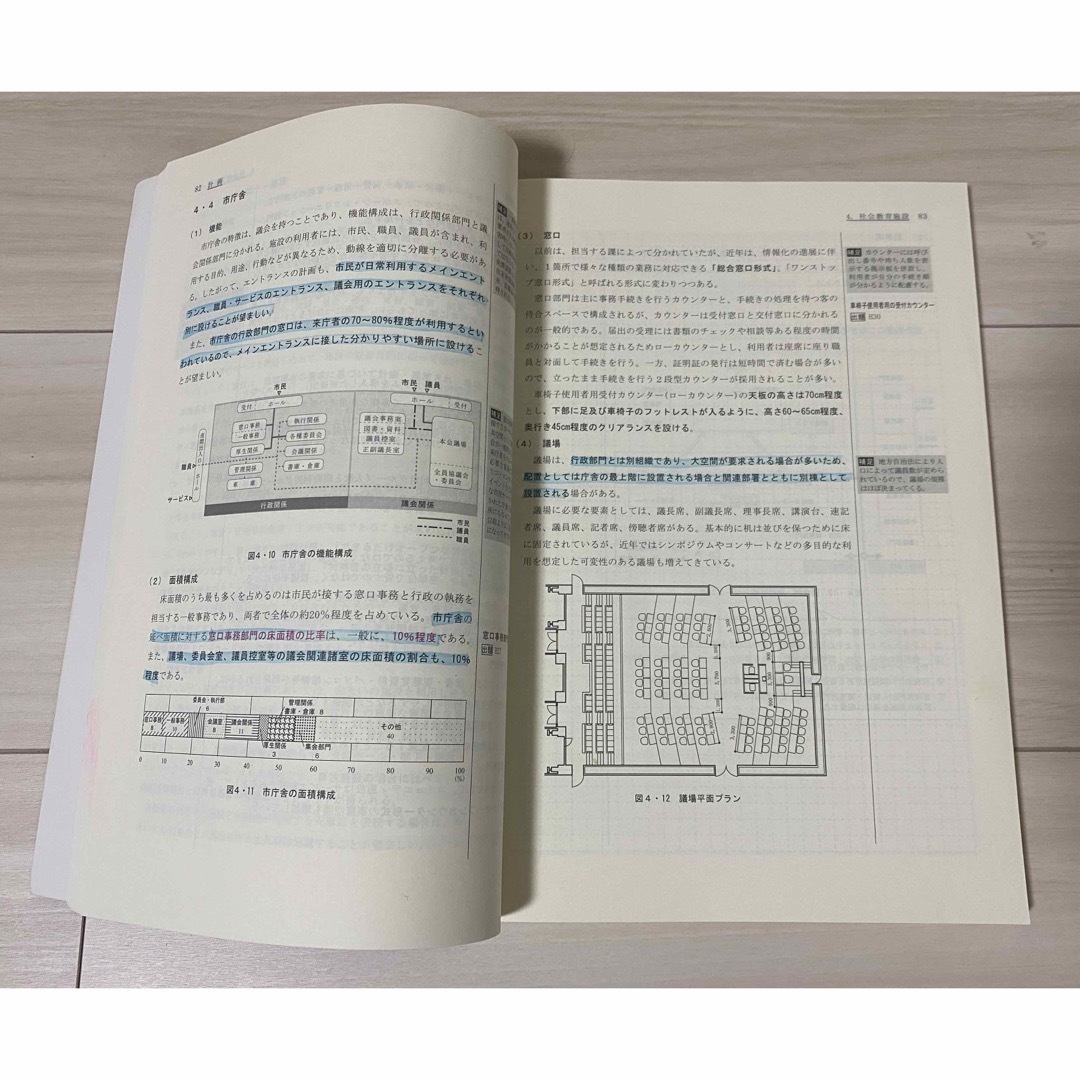 82 計画
4・4 市庁舎
(1) 機能
市庁舎の特徴は、議会を持つことであり、機能構成は、行政関係部門と議
会関係部門に分かれる。施設の利用者には、市民、職員、議員が含まれ、利
用する目的、用途、行動などが異なるため、動線を適切に分離する必要があ
る。したがって、エントランスの計画も、市民が日常利用するメインエント
ランス、職員・サービスのエントランス、議会用のエントランスをそれぞれ
別に設けることが望ましい。
また、市庁舎の行政部門の窓口は、来庁者の70～80%程度が利用するとい
われているので、メインエントランスに接した分かりやすい場所に設けるこ
とが望ましい。
市民
市民 議員
受付 ホール
ホール 受付
窓口事務
一般事務
厚生関係
管理関係
車庫
執行関係
各種委員会
会議関係
書庫・倉庫
議会事務室
図書・資料
議員控室
正副議長室
本会議場
全員協議会
委員会
夜間出入口
ホール
職員
サービス
行政関係
議会関係
市民
議員
職員
図4・10 市庁舎の機能構成
(2) 面積構成
床面積のうち最も多くを占めるのは市民が接する窓口事務と行政の執務を
担当する一般事務であり、両者で全体の約20%程度を占めている。市庁舎の
延べ面積に対する窓口事務部門の床面積の比率は、一般に、10%程度である。
また、議場、委員会室、議員控室等の議会関連諸室の床面積の割合も、10%
程度である。
窓口事務部
出題 H27
委員会・執行部
6
管理関係
書庫・倉庫 8
窓口事務
8
一般事務
10
会議室
8
議会関係
11
その他
40
厚生関係
3
集会部門
6
0 10 20 30 40 50 60 70 80 90 100
(%)
図4・11 市庁舎の面積構成
4. 社会教育施設 83
(3) 窓口
以前は、担当する課によって分かれていたが、近年は、情報化の進展に伴
い、1箇所で様々な種類の業務に対応できる「総合窓口形式」、「ワンストッ
プ窓口形式」と呼ばれる形式に変わりつつある。
窓口部門は主に事務手続きを行うカウンターと、手続きの処理を待つ客の
待合スペースで構成されるが、カウンターは受付窓口と交付窓口に分かれる
のが一般的である。届出の受理には書類のチェックや相談等ある程度の時間
がかかることが想定されるためローカウンターとし、利用者は座席に座り職
員と対面して手続きを行う。一方、証明証の発行は短時間で済む場合が多い
ので、立ったまま手続きを行う2段型カウンターが採用されることが多い。
車椅子使用者用受付カウンター(ローカウンター)の天板の高さは70cm程度
とし、下部に足及び車椅子のフットレストが入るように、高さ60～65cm程度、
奥行き45cm程度のクリアランスを設ける。
補足 カウンターには呼び
出し番号や待ち人数を表
示する掲示板を併設し、
利用者が自分の手続き順
が分かるように配慮する。
車椅子使用者用の受付カウンター
出題 H30
(4) 議場
議場は、行政部門とは別組織であり、大空間が要求される場合が多いため、
配置としては庁舎の最上階に設置される場合と関連部署とともに別棟として
設置される場合がある。
議場に必要な要素としては、議長席、副議長席、理事長席、講演台、速記
者席、議員席、記者席、傍聴者席がある。基本的に机は並びを保つために床
に固定されているが、近年ではシンポジウムやコンサートなどの多目的な利
用を想定した可変性のある議場も増えてきている。
補足 地方自治法により人
口によって議員数が定めら
れているので、議場の規模
はほぼ決まってくる。
図4・12 議場平面プラン